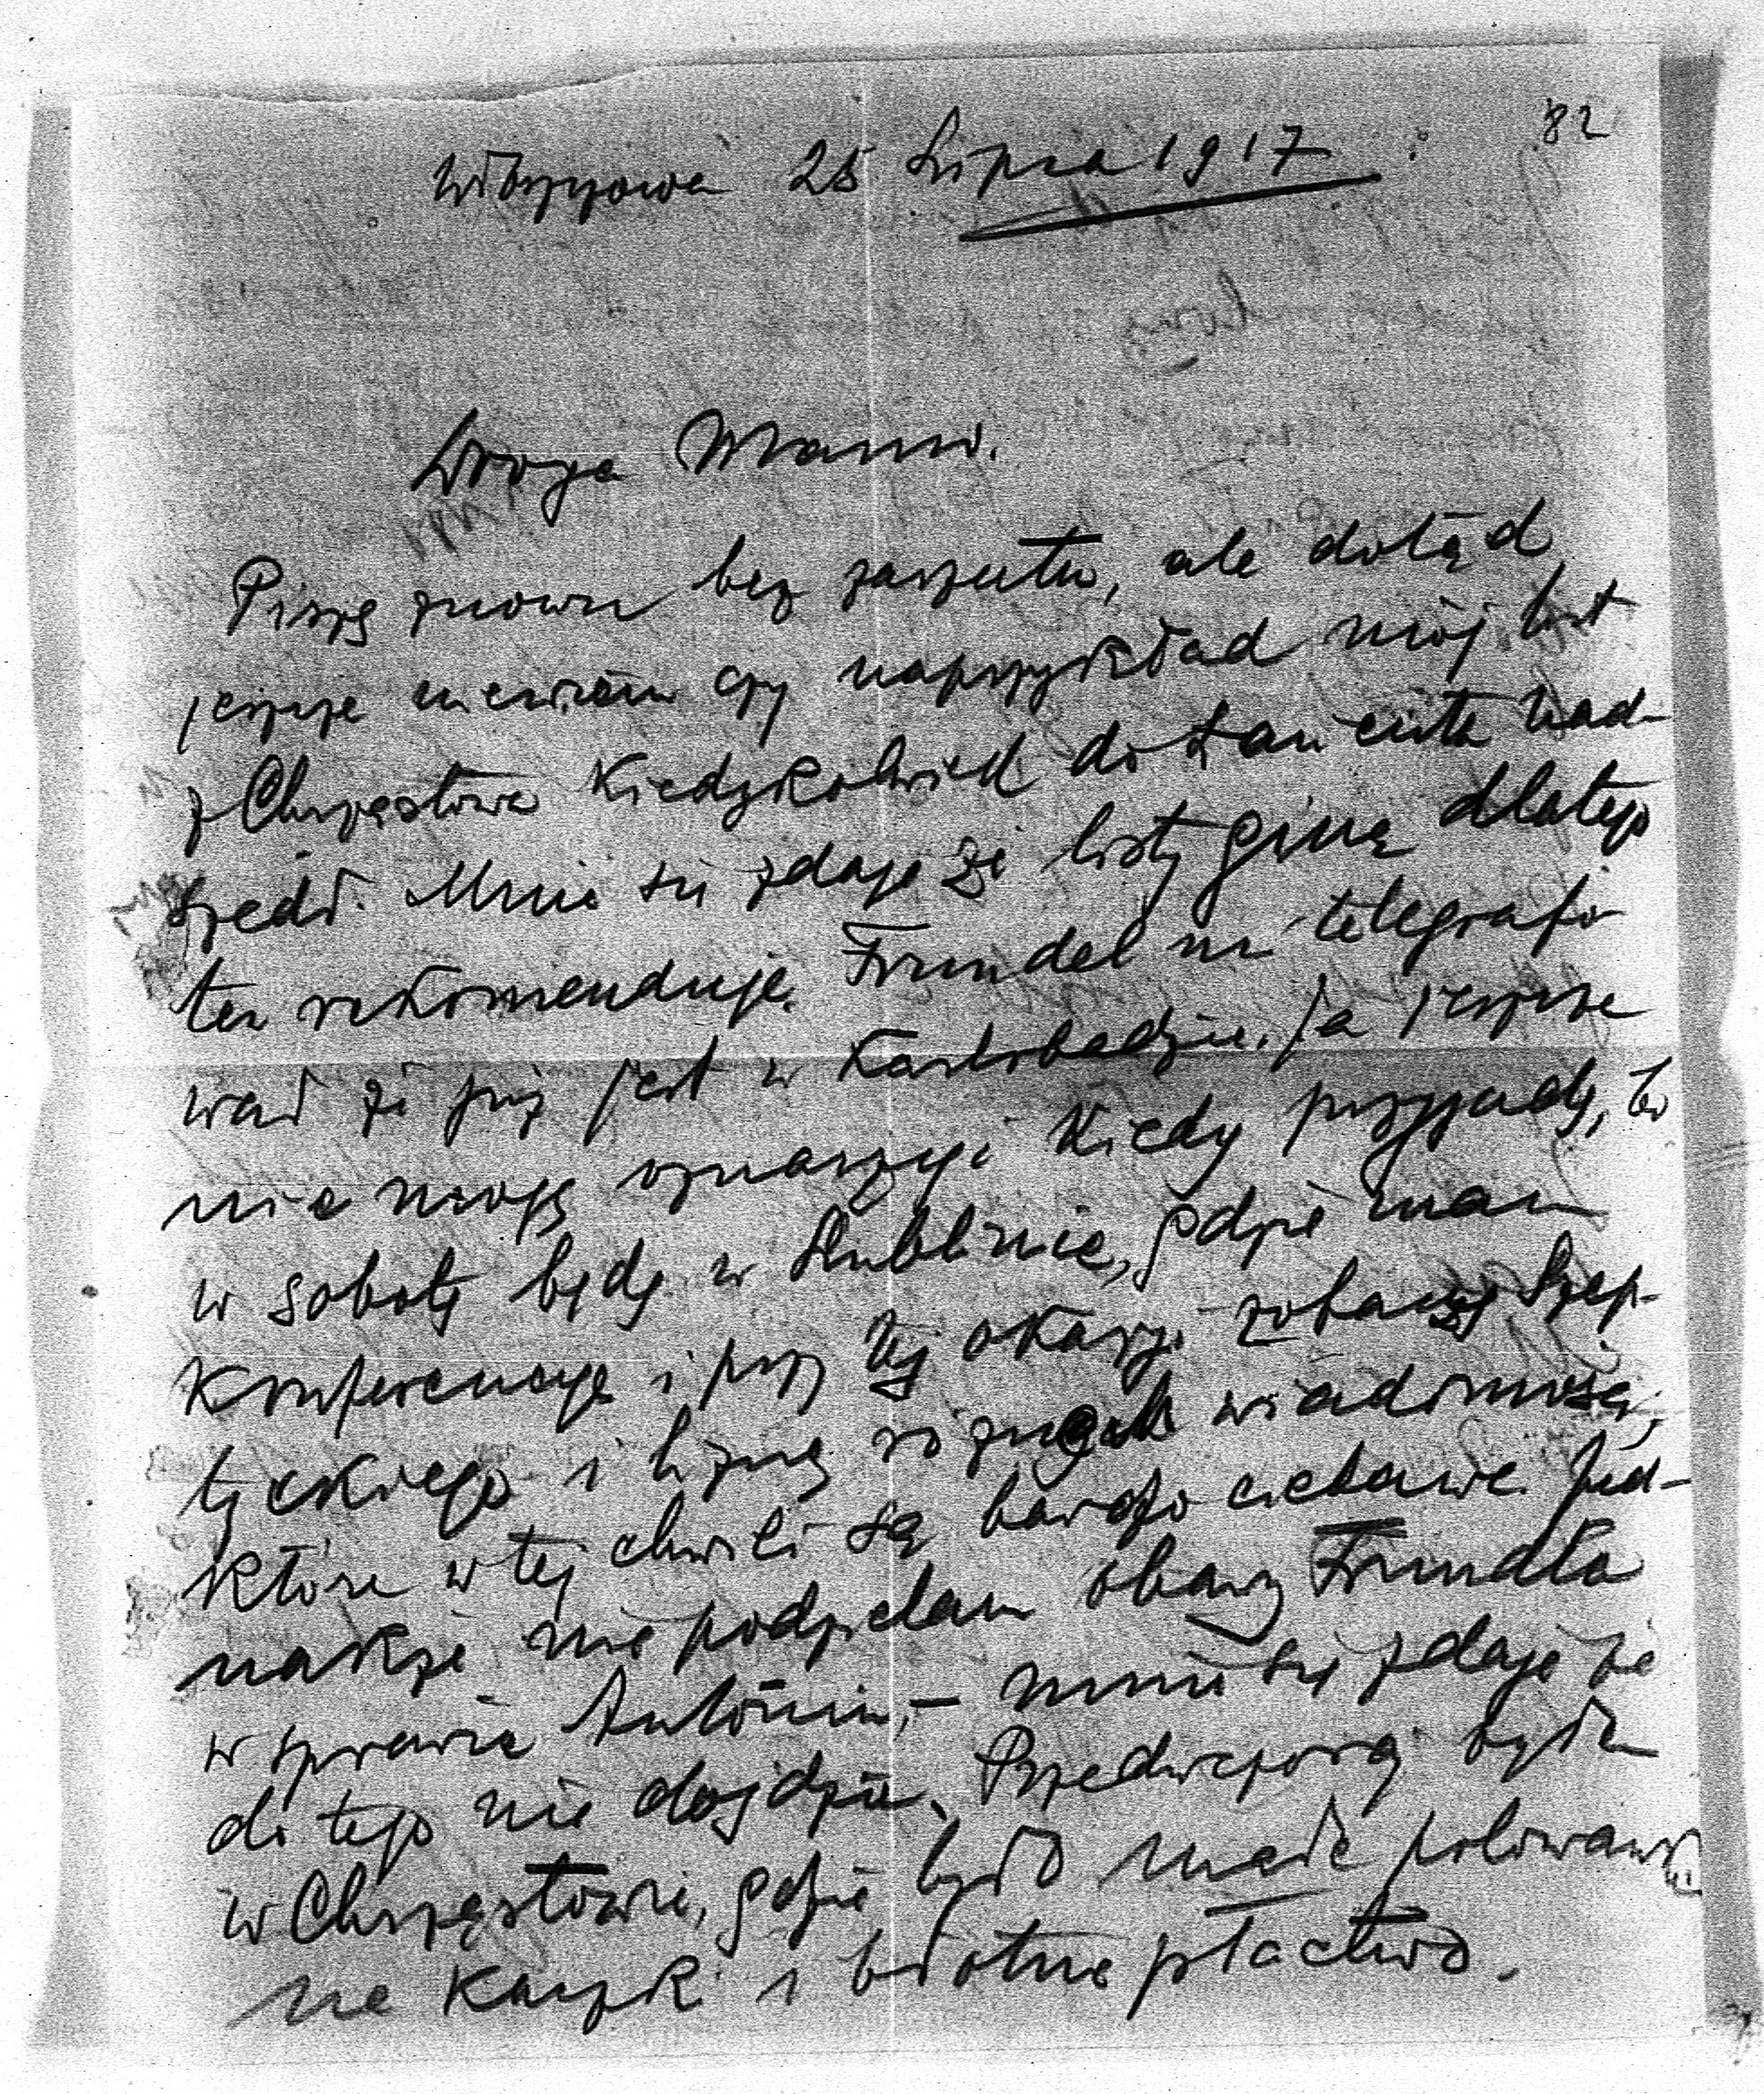 82
Włoszczowa 25 Lipca 1917
Droga Mamo.
Piszę znowu bez zarzutu, ale dotąd
jeszcze niewiem czy naprzykład mój list
z Chrząstowa kiedykolwiek do Łańcuta nad-
szedł. Mnie się zdaje że listy giną dlatego
ten rekomenduję. Frundel mi telegrafo-
wał że już jest w Karlsbadzie. Ja jeszcze
nie mogę oznaczyć kiedy przyjadę, bo
w sobotę będę w Lublinie, gdzie mam
Konferencye i przy tej okazyi zobaczę Szep-
tyckiego i liznę różnych wiadomości,
które w tej chwili są bardzo ciekawe. Jed-
nakże nie podzielam obawy Frundla
w sprawie Antonin, – mnie się zdaje że
do tego nie dojdzie. Przedwczoraj byłem
w Chrząstowie, gdzie było małe polowanie
na kaczki i błotne ptactwo.